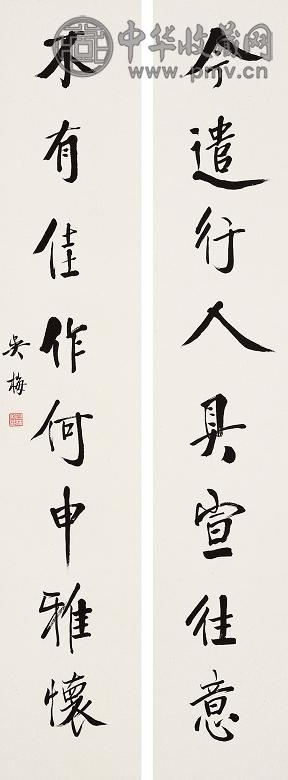 中华收藏网
www.pmv.cn
今遣行人具宣往意
不有佳作何申雅懷
吴梅